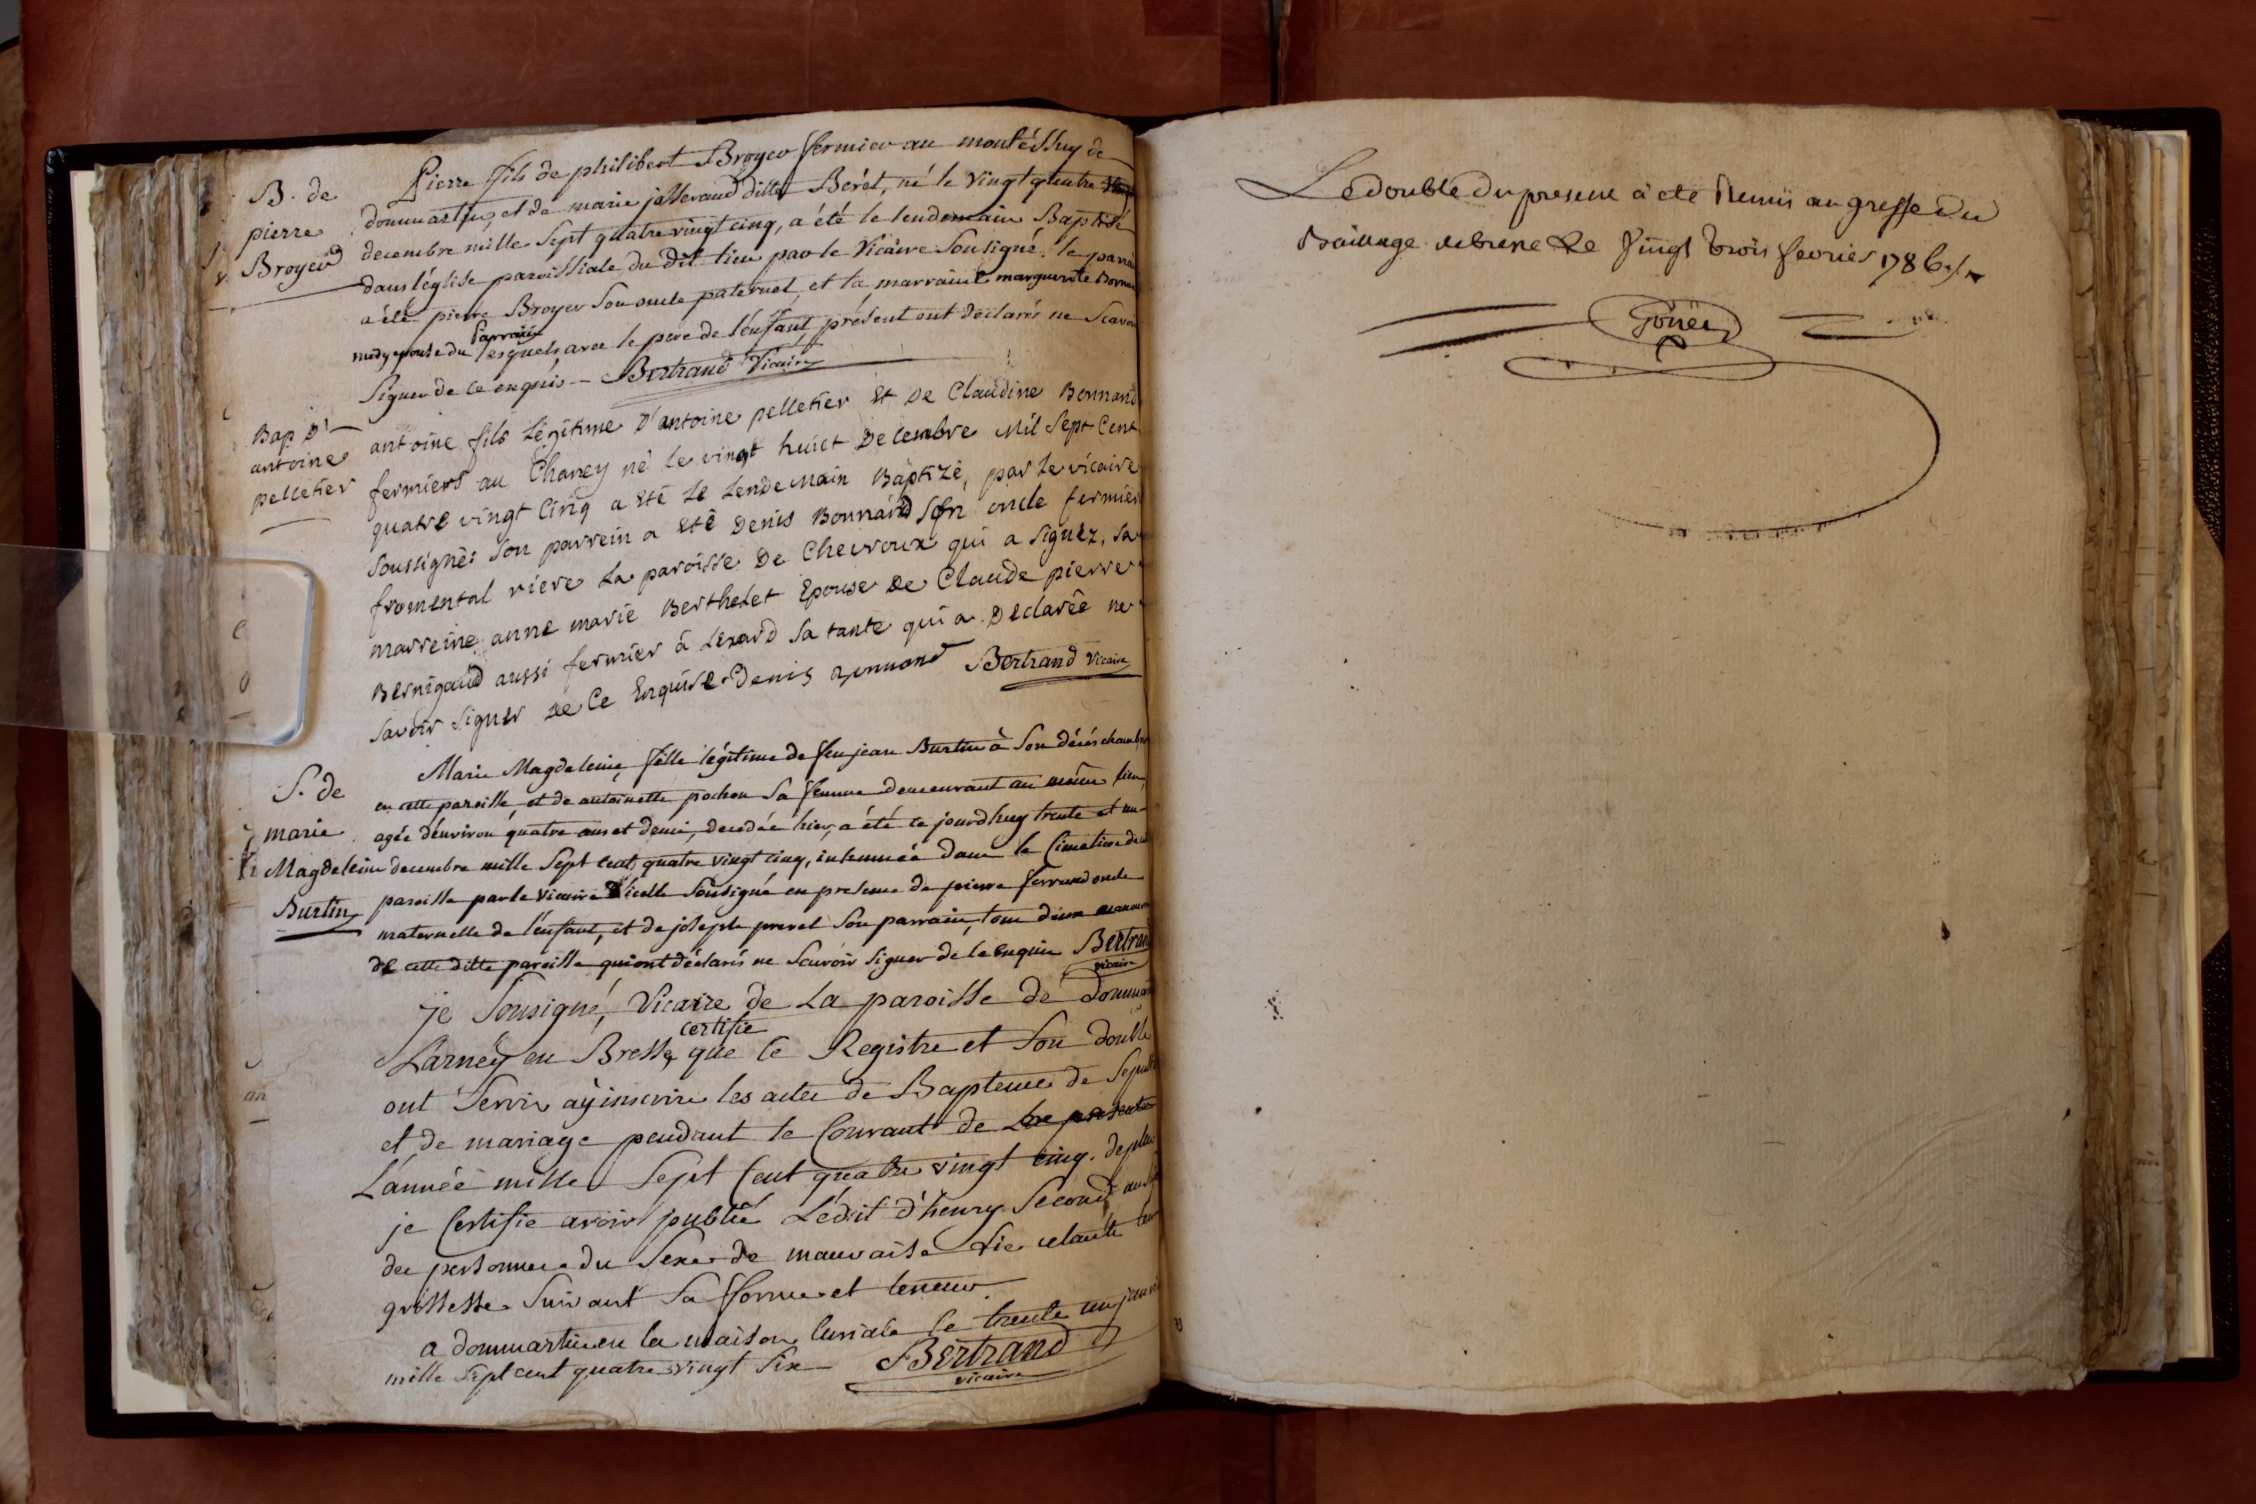 B. de
pierre
Broyer
Pierre fils de philibert Broyer fermier au montéssuy de
dommartin, et de marie josserand ditte Berét, né le vingt quatre
decembre mille sept quatre vingt cinq, a été le lendemain Baptisé
dans léglise paroissiale du dit lieu par le Vicaire Sousigné. le parrain
a été pierre Broyer son oncle paternel, et la marraine marguerite
épouse du Parrain lesquels avec le pere de l'enfant, présent ont déclarés ne Scavoir
signer de ce enquis – Bertrand Vicaire
Bap D'
antoine
pelletier
antoine fils Légitime D'antoine pelletier et De Claudine Bonnand
fermiers au Chaney né le vingt huict Decembre Mil Sept Cent
quatre vingt Cinq a eté Le Lendemain Baptizé, par Le vicaire
Soussignés Son parrein a eté Denis Bonnand Son oncle fermier
fromental riere La paroisse De Chevroux qui a Signez, Sa
marreine anne marie Berthelet Epouse De Claude pierre
Bernigaud aussi fermier à Lexard Sa tante qui a Declarée ne
Savoir Signer De Ce Enquise. Denis Bonnand Bertrand Vicaire
S. de
marie
Magdeleine
Burtin
Marie Magdeleine, fille légitime de feu jean Burtin à son décés
en cette paroisse et de antoinette pochon sa femme demeurant au même lieu,
agée d'environ quatre ans et demi, decedée hier, a été ce jourdhuy trente et un
decembre mille sept cent quatre vingt cinq, inhumée dans le Cimetiere de
paroisse par le Vicaire d'icelle Sousigné en presence de pierre ferrand oncle
maternelle de l'enfant, et de joseph prevel son parrain, tous deux
de cette ditte paroisse qui ont déclarés ne Scavoir signer de ce Enquis Bertrand
vicaire
je Sousigné, Vicaire de La paroisse de dommartin
Larnéy en Bresse certifie que ce Registre et son double
ont servi a y inscrire les actes de Bapteme de Sepulture
et de mariage pendant le Courant de
L'année mille Sept Cent quatre vingt cinq. de plus
je Certifie avoir publié L'édit d'henry Second
des personnes du Sexe de mauvaise vie celant leur
grossesse suivant sa forme et teneur.
a dommartin en la maison Curiale le trente un janvier
mille sept cent quatre vingt six Bertrand
vicaire
Le double du present à eté Remis au greffe Du
Bailliage de bresse Le Vingt trois fevrier 1786